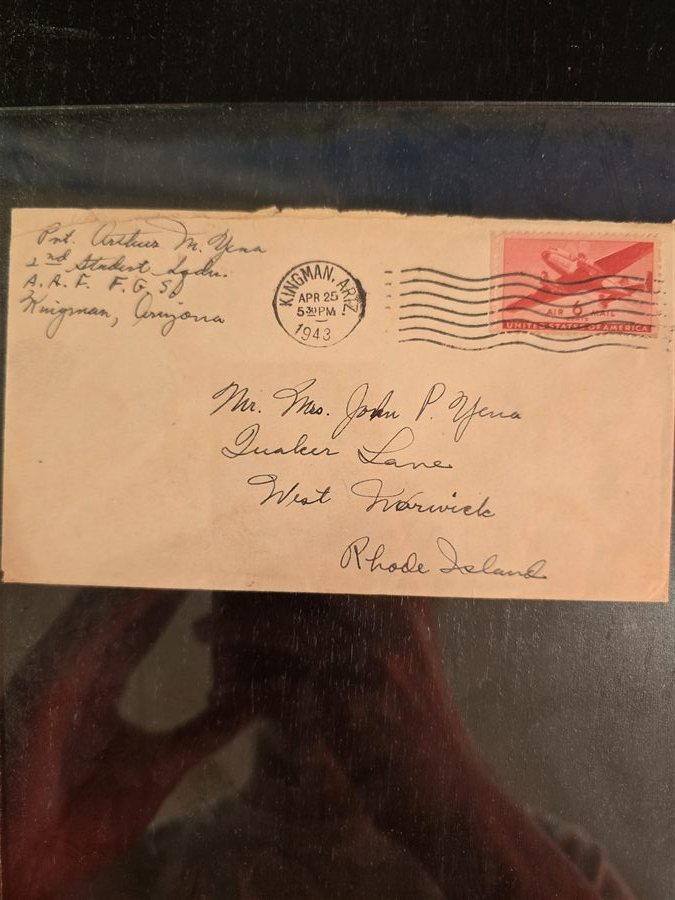 Pvt. Arthur M. Yena
2nd Student Sqdn.
A. A. F. F. G. S.
Kingman, Arizona
KINGMAN, ARIZ.
APR 25
5 30 PM
1943
6
AIR MAIL
UNITED STATES OF AMERICA
Mr. Mrs. John P. Yena
Quaker Lane
West Warwick
Rhode Island